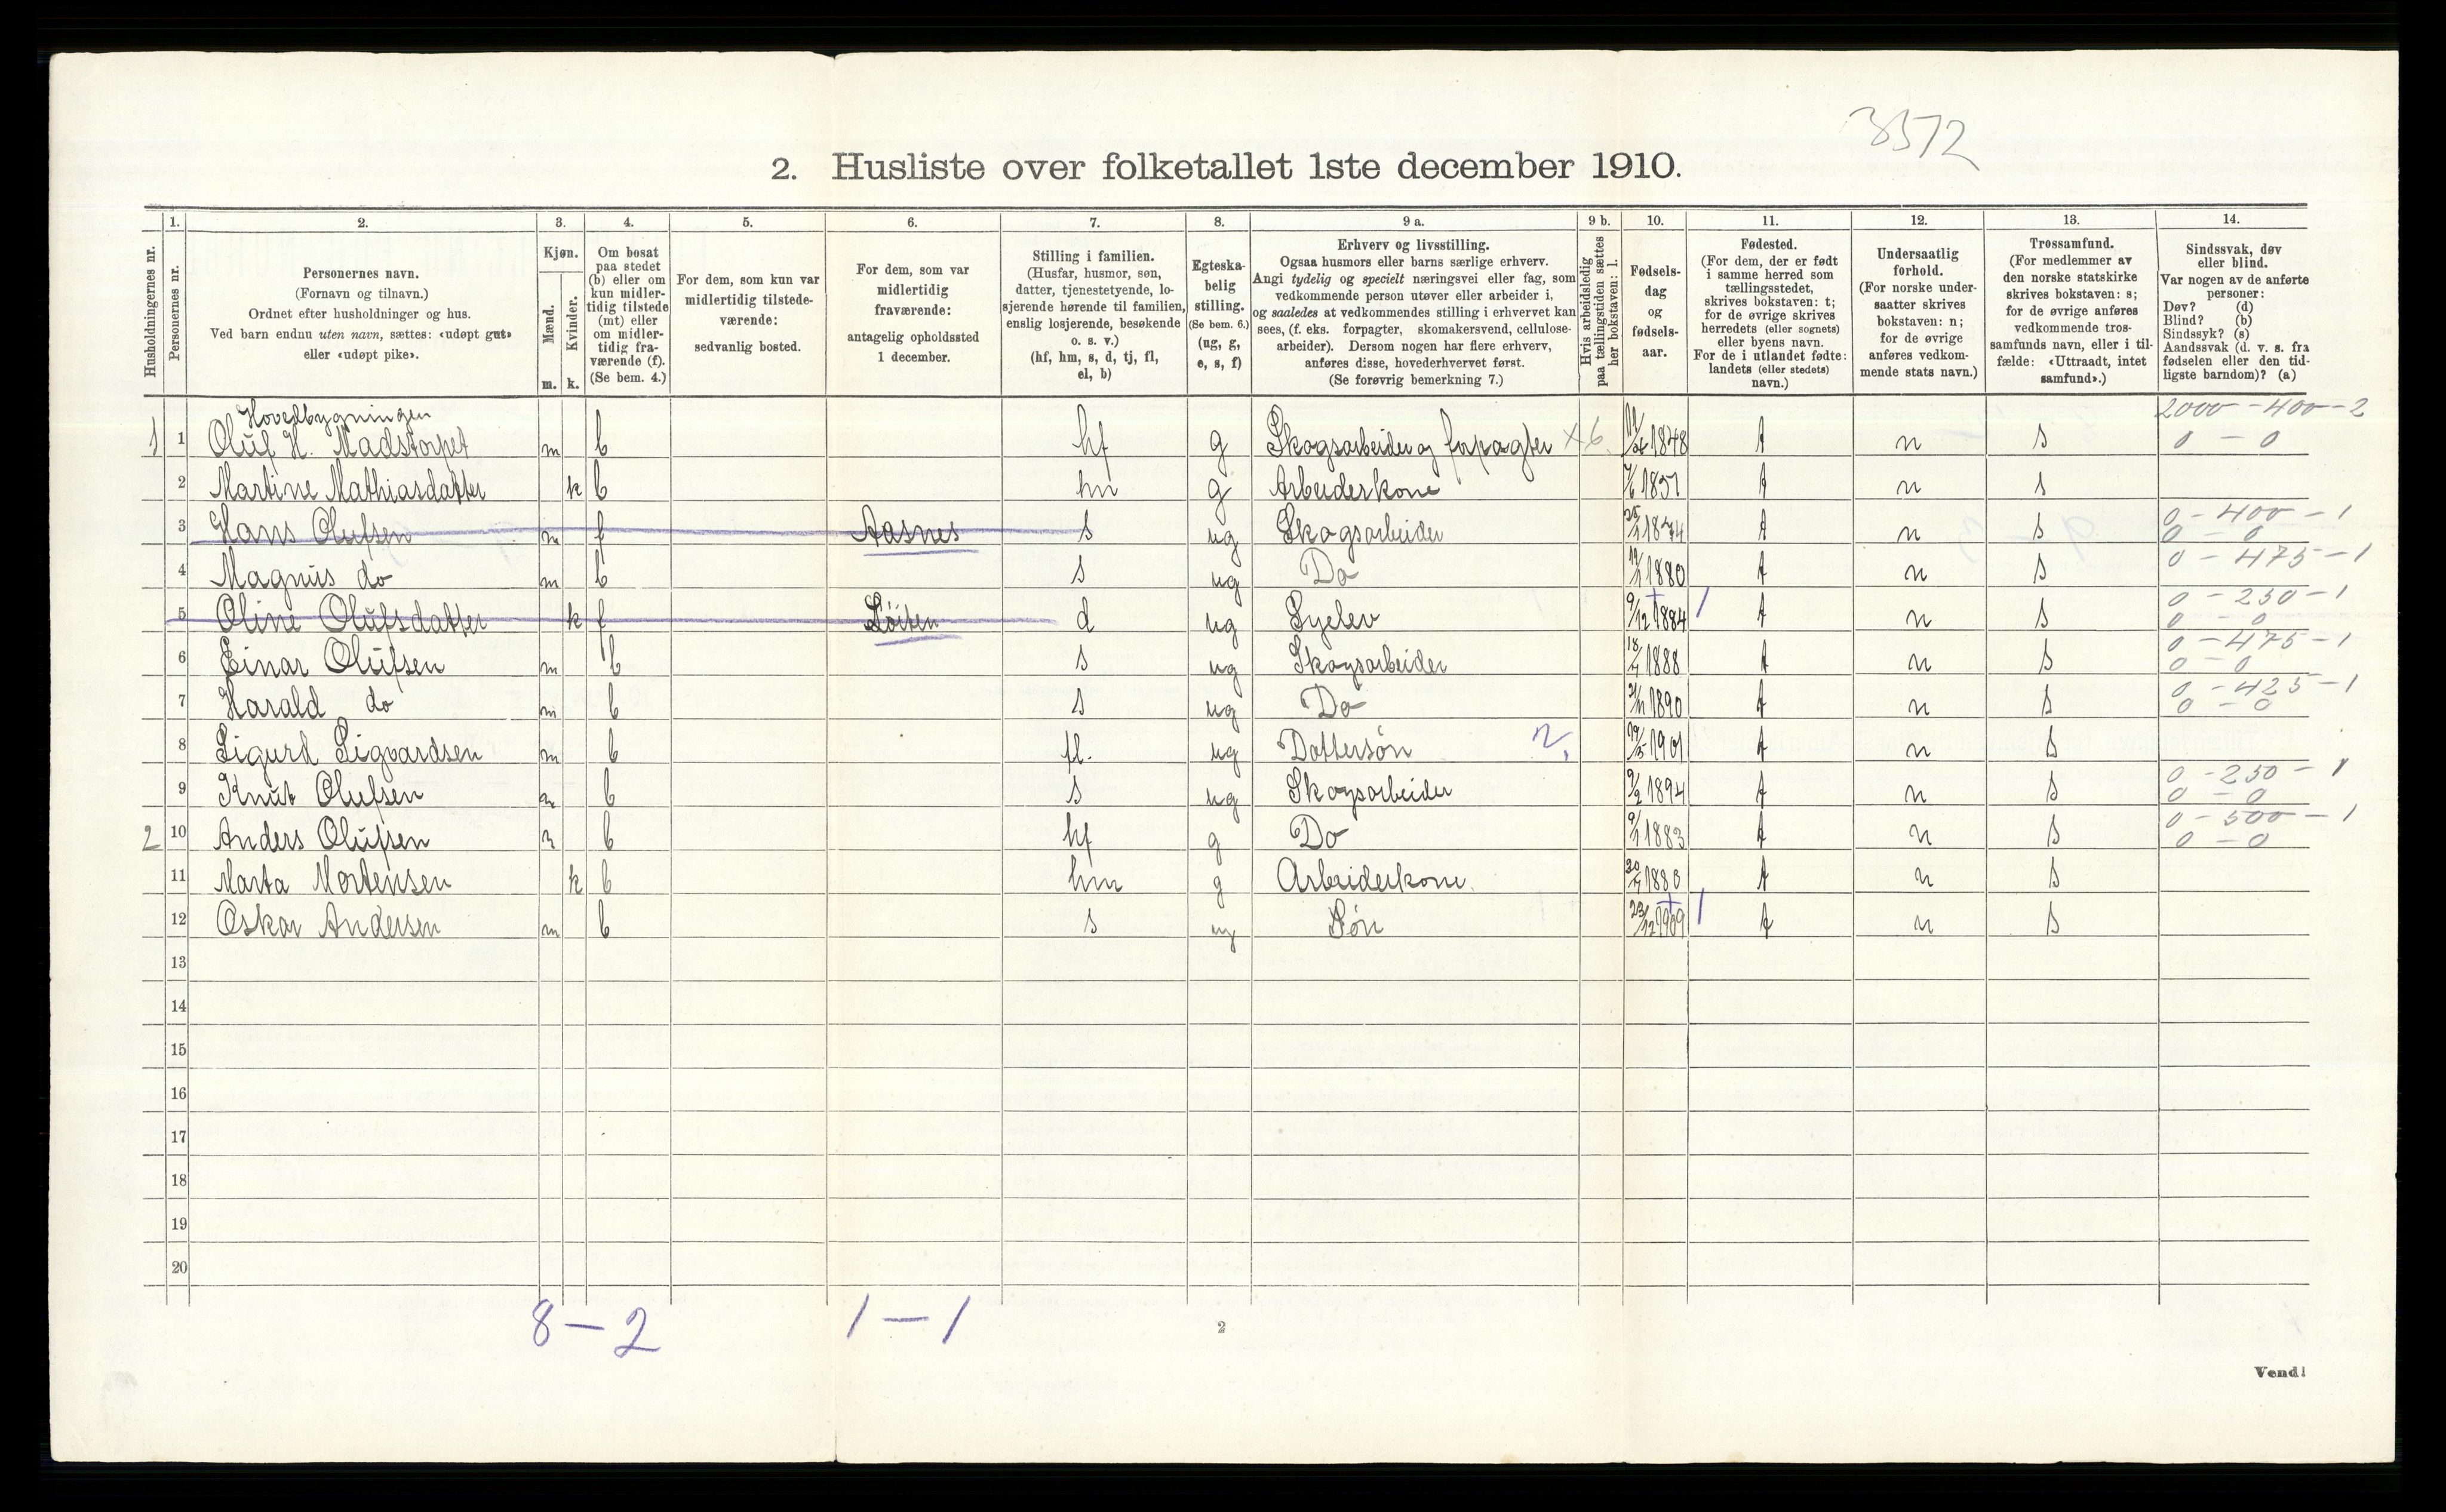 3572
2. Husliste over folketallet 1ste december 1910.
Husholdningernes nr.
1. Personernes nr.
2. Personernes navn.
(Fornavn og tilnavn.)
Ordnet efter husholdninger og hus.
Ved barn endnu uten navn, sættes: «udøpt gut»
eller «udøpt pike».
3. Kjøn.
Mænd. m.
Kvinder. k.
4. Om bosat
paa stedet
(b) eller om
kun midler-
tidig tilstede
(mt) eller
om midler-
tidig fra-
værende (f).
(Se bem. 4.)
5. For dem, som kun var
midlertidig tilstede-
værende:
sedvanlig bosted.
6. For dem, som var
midlertidig
fraværende:
antagelig opholdssted
1 december.
7. Stilling i familien.
(Husfar, husmor, søn,
datter, tjenestetyende, lo-
sjerende hørende til familien,
enslig losjerende, besøkende
o. s. v.)
(hf, hm, s, d, tj, fl,
el, b)
8. Egteska-
belig
stilling.
(Se bem. 6.)
(ug, g,
e, s, f)
9 a. Erhverv og livsstilling.
Ogsaa husmors eller barns særlige erhverv.
Angi tydelig og specielt næringsvei eller fag, som
vedkommende person utøver eller arbeider i,
og saaledes at vedkommendes stilling i erhvervet kan
sees, (f. eks. forpagter, skomakersvend, cellulose-
arbeider). Dersom nogen har flere erhverv,
anføres disse, hovederhvervet først.
(Se forøvrig bemerkning 7.)
9 b. Hvis arbeidsledig
paa tællingstiden sættes
her bokstaven: l.
10. Fødsels-
dag
og
fødsels-
aar.
11. Fødested.
(For dem, der er født
i samme herred som
tællingsstedet,
skrives bokstaven: t;
for de øvrige skrives
herredets (eller sognets)
eller byens navn.
For de i utlandet fødte:
landets (eller stedets)
navn.)
12. Undersaatlig
forhold.
(For norske under-
saatter skrives
bokstaven: n;
for de øvrige
anføres vedkom-
mende stats navn.)
13. Trossamfund.
(For medlemmer av
den norske statskirke
skrives bokstaven: s;
for de øvrige anføres
vedkommende tros-
samfunds navn, eller i til-
fælde: «Uttraadt, intet
samfund».)
14. Sindssvak, døv
eller blind.
Var nogen av de anførte
personer:
Døv? (d)
Blind? (b)
Sindssyk? (s)
Aandssvak (d. v. s. fra
fødselen eller den tid-
ligste barndom)? (a)
Hovedbygningen 2000 - 400 - 2
1 1 Oluf H. Madstorpet m b hf g Skogsarbeider og forpagter x 6 1848 t n s 0 - 0
2 Martine Mathiasdatter k b hm g Arbeiderkone 1851 t n s
0 - 400 - 1
3 Hans Olufsen m f Aasnes s ug Skogsarbeider 1874 t n s 0 - 0
4 Magnus do m b s ug Do 1880 t n s 0 - 475 - 1
0 - 250 - 1
5 Oline Olufsdatter k f Löiten d ug Syelev 9/12 1884 t n s 0 - 0
0 - 475 - 1
6 Einar Olufsen m b s ug Skogsarbeider 1888 t n s 0 - 0
0 - 425 - 1
7 Harald do m b s ug Do 21/11 1890 t n s 0 - 0
8 Sigurd Sigvardsen m b fl. ug Dattersön 19/5 1901 t n s
0 - 250 - 1
9 Knut Olufsen m b s ug Skogsarbeider 9/2 1894 t n s 0 - 0
0 - 500 - 1
2 10 Anders Olufsen m b hf g Do 9/1 1883 t n s 0 - 0
11 Marta Mortensen k b hm g Arbeiderkone. 1880 t n s
12 Oskar Andersen m b s ug Sön 23/12 1909 t n s
13
14
15
16
17
18
19
20
8 - 2 1 - 1
2
Vend!